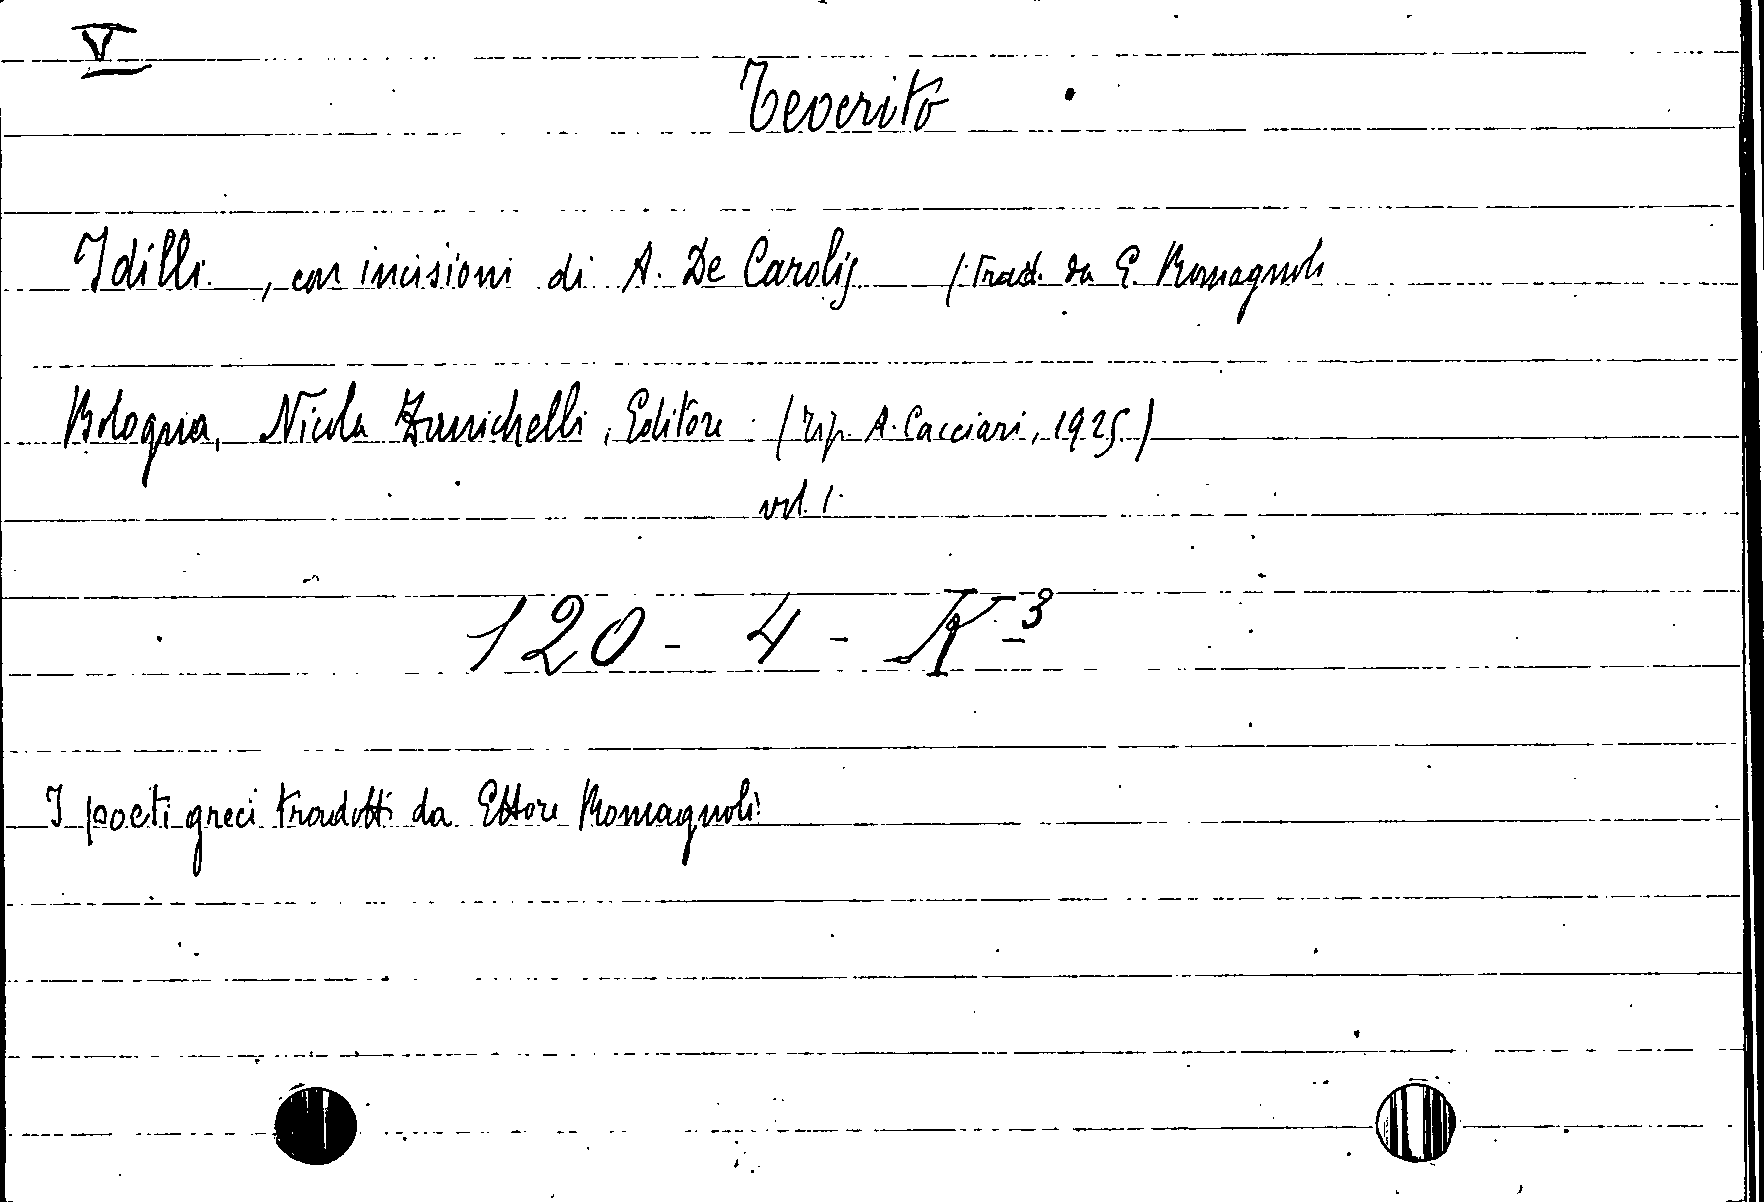 V
Teocrito
Idilli, con incisioni di A. De Carolis (Trad. da E. Romagnoli
Bologna, Nicola Zanichelli, Editore (Tip. A. Cacciari, 1925)
vol. 1
120 - 4 - K-3
I poeti greci tradotti da Ettore Romagnoli